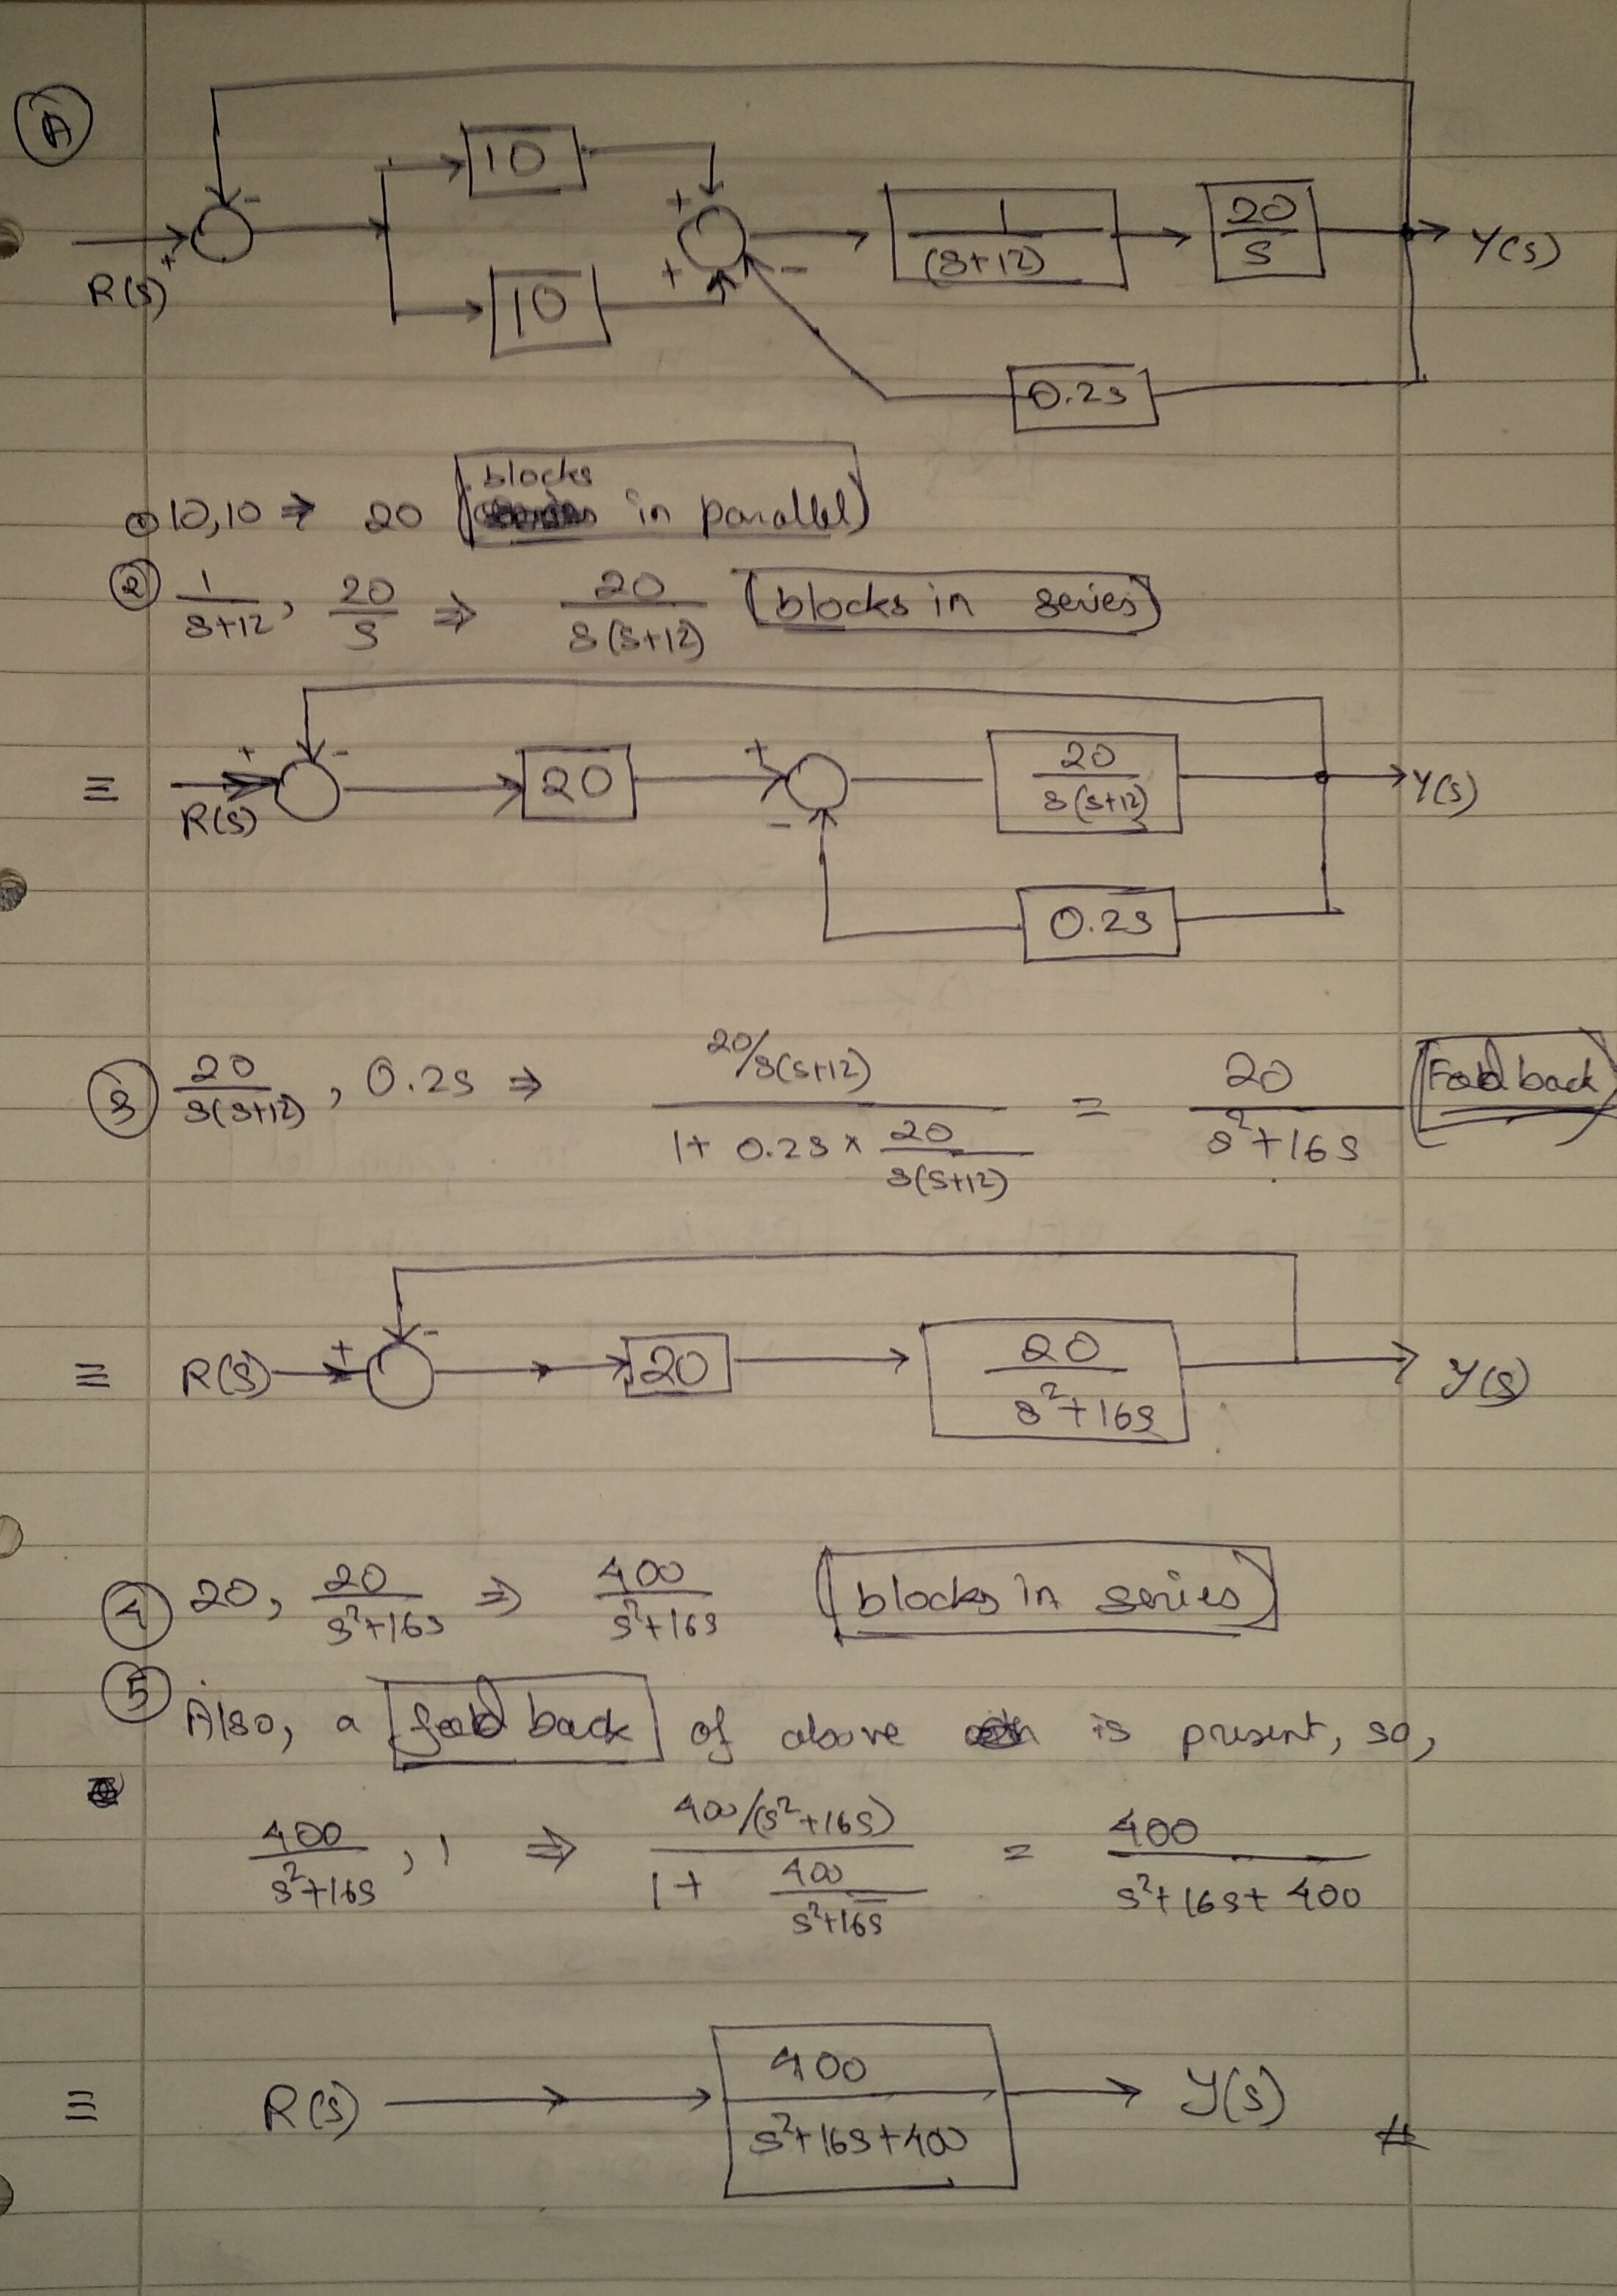 A
10
1/(s+12)
20/s
Y(s)
R(s)
+
-
+
+
-
10
0.2s
① 10,10 ⇒ 20 (blocks in parallel)
② 1/(s+12), 20/s ⇒ 20/(s(s+12)) (blocks in series)
≡ R(s) + - 20 + - 20/(s(s+12)) Y(s)
0.2s
③ 20/(s(s+12)), 0.2s ⇒ (20/s(s+12))/(1+ 0.2s × 20/(s(s+12))) = 20/(s²+16s) (Feedback)
≡ R(s) + - 20 20/(s²+16s) Y(s)
④ 20, 20/(s²+16s) ⇒ 400/(s²+16s) (blocks in series)
⑤ Also, a feedback of above is present, so,
400/(s²+16s), 1 ⇒ (400/(s²+16s))/(1+ 400/(s²+16s)) = 400/(s²+16s+400)
≡ R(s) 400/(s²+16s+400) Y(s) #